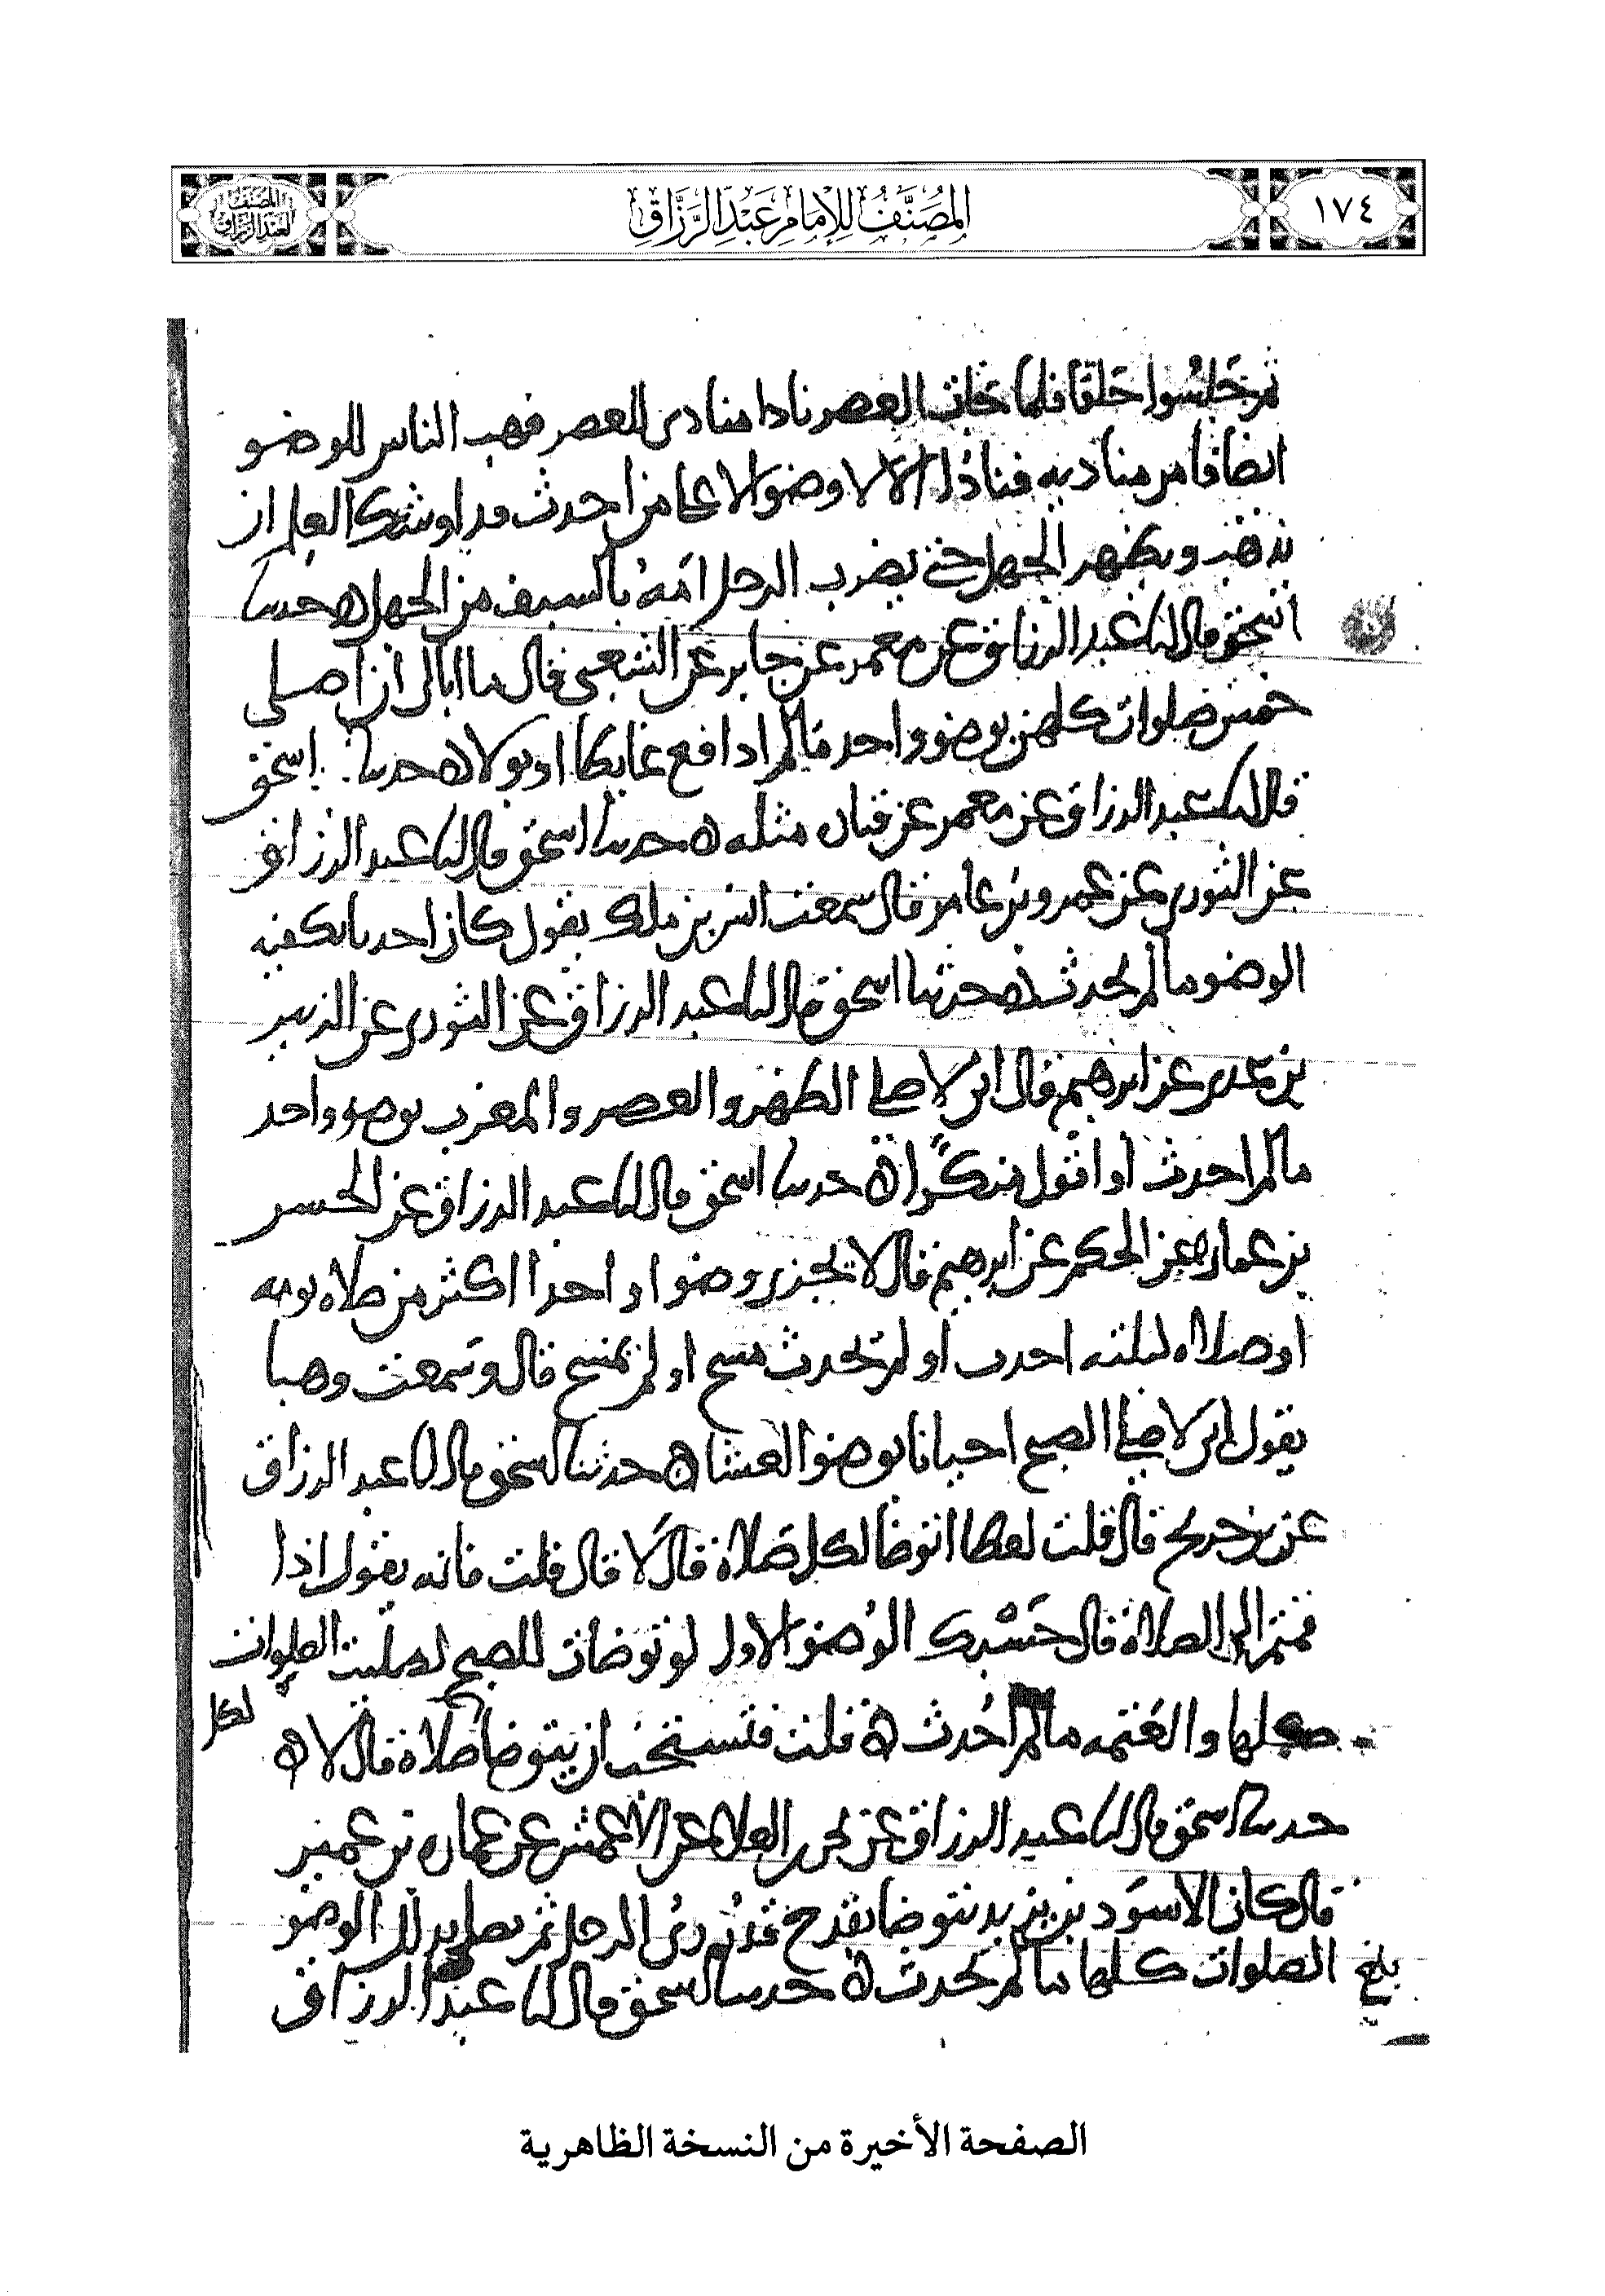 ١٧٤
المُصَنَّفُ لِلإِمَامِ عَبْدِ الرَّزَّاقِ
المصنف لعبد الرزاق
ثم جَلسُوا حلقًا فلما حَانت العصر نادا منادى للعصر فهب الناس للوضو
ايضا فامر مناديه فنادى الا لا وضو الا علي من احدث قد اوشك العلم ان
يذهب ويظهر الجهل حتى يضرب الرجل امه بالسيف من الجهل ه حدثنا
اسحق قال انا عبد الرزاق عن معمر عن جابر عن الشعبي قال ما ابالي ان اصلي
خمس صلوات كلهن بوضو واحد ما لم ادافع غايطا او بولا ه حدثنا اسحق
قال انا عبد الرزاق عن معمر عن قتاده مثله ه حدثنا اسحق قال انا عبد الرزاق
عن الثوري عن عمرو بن عامر قال سمعت انس بن ملك يقول كان احدنا يكفيه
الوضو ما لم يحدث ه حدثنا اسحق قال انا عبد الرزاق عن الثوري عن الزبير
بن عدي عن ابرهيم قال اني لاصلي الظهر والعصر والمغرب بوضو واحد
ما لم احدث او اقول منكرًا ه حدثنا اسحق قال انا عبد الرزاق عن الحسن
بن عماره عن الحكم عن ابرهيم قال لا يجزي وضوا واحدا اكثر من صلاه يومه
او صلاه ليلته احدث او لم يحدث مسح او لم يمسح قال وسمعت وهبا
يقول اني لاصلي الصبح احيانا بوضو العشا ه حدثنا اسحق قال انا عبد الرزاق
عن بن جريح قال قلت لعطا اتوضا لكل صَلاة قال لا قال قلت فانه يقول اذا
قمتم الى الصلاة قال حَسْبك الوُضو الاول لو توضات للصبح لصليت الصلوات
كلها والعَتمه ما لم احُدث ه قلت فتستحب ان يتوضا صَلاة قال لا ه
لكل
حدثنا اسحق قال انا عبد الرزاق عن يحيى بن العلا عن الاعمش عن عماره بن عمير
قال كان الاسوَد بن يزيد يتوضا بقدح قدر رىُ الرجل ثم يصلي بذلك الوضو
الصلوات كلها ما لم يحدث ه حدثنا اسحق قال انا عبد الرزاق
بلغ
الصفحة الأخيرة من النسخة الظاهرية